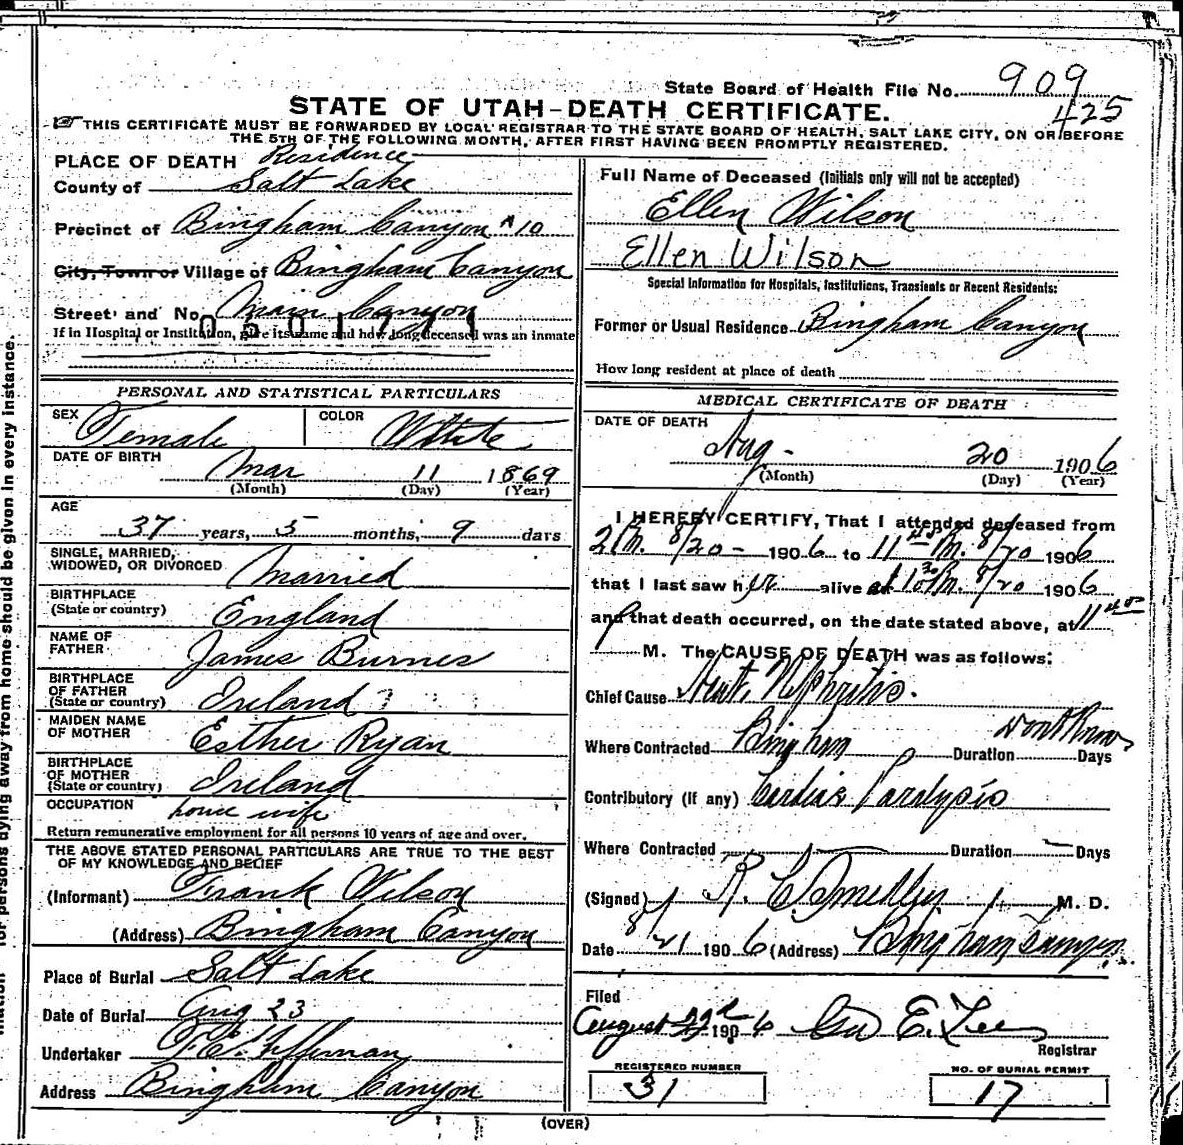 State Board of Health File No. 909
425
STATE OF UTAH—DEATH CERTIFICATE.
THIS CERTIFICATE MUST BE FORWARDED BY LOCAL REGISTRAR TO THE STATE BOARD OF HEALTH, SALT LAKE CITY, ON OR BEFORE
THE 5TH OF THE FOLLOWING MONTH, AFTER FIRST HAVING BEEN PROMPTLY REGISTERED.
PLACE OF DEATH Residence
County of Salt Lake
Precinct of Bingham Canyon #10
City, Town or Village of Bingham Canyon
Street and No. Main Canyon
0501771
If in Hospital or Institution, give its name and how long deceased was an inmate
PERSONAL AND STATISTICAL PARTICULARS
SEX Female COLOR White
DATE OF BIRTH Mar 11 1869
(Month) (Day) (Year)
AGE
37 years, 5 months, 9 days
SINGLE, MARRIED,
WIDOWED, OR DIVORCED Married
BIRTHPLACE
(State or country) England
NAME OF
FATHER James Burnes
BIRTHPLACE
OF FATHER
(State or country) Ireland
MAIDEN NAME
OF MOTHER Esther Ryan
BIRTHPLACE
OF MOTHER
(State or country) Ireland
OCCUPATION house wife
Return remunerative employment for all persons 10 years of age and over.
THE ABOVE STATED PERSONAL PARTICULARS ARE TRUE TO THE BEST
OF MY KNOWLEDGE AND BELIEF
(Informant) Frank Wilson
(Address) Bingham Canyon
Place of Burial Salt Lake
Date of Burial Aug 23
Undertaker
Address Bingham Canyon
Full Name of Deceased (Initials only will not be accepted)
Ellen Wilson
Ellen Wilson
Special Information for Hospitals, Institutions, Transients or Recent Residents:
Former or Usual Residence Bingham Canyon
How long resident at place of death
MEDICAL CERTIFICATE OF DEATH
DATE OF DEATH
Aug. 20 1906
(Month) (Day) (Year)
I HEREBY CERTIFY, That I attended deceased from
2 P.M. 8/20 1906 to 11 45 P.M. 8/20 1906
that I last saw her alive at 10 30 P.M. 8/20 1906
and that death occurred, on the date stated above, at 11 45
P M. The CAUSE OF DEATH was as follows:
Chief Cause Nephritis.
Where Contracted Bingham Duration Dont Know Days
Contributory (if any) Cardiac Paralysis
Where Contracted Duration Days
(Signed) R. C. Smedley M. D.
Date 8/21 1906 (Address) Bingham Canyon
Filed
August 22d 1906 Geo E. Lee
Registrar
REGISTERED NUMBER
31
NO. OF BURIAL PERMIT
17
(OVER)
for persons dying away from home should be given in every instance.